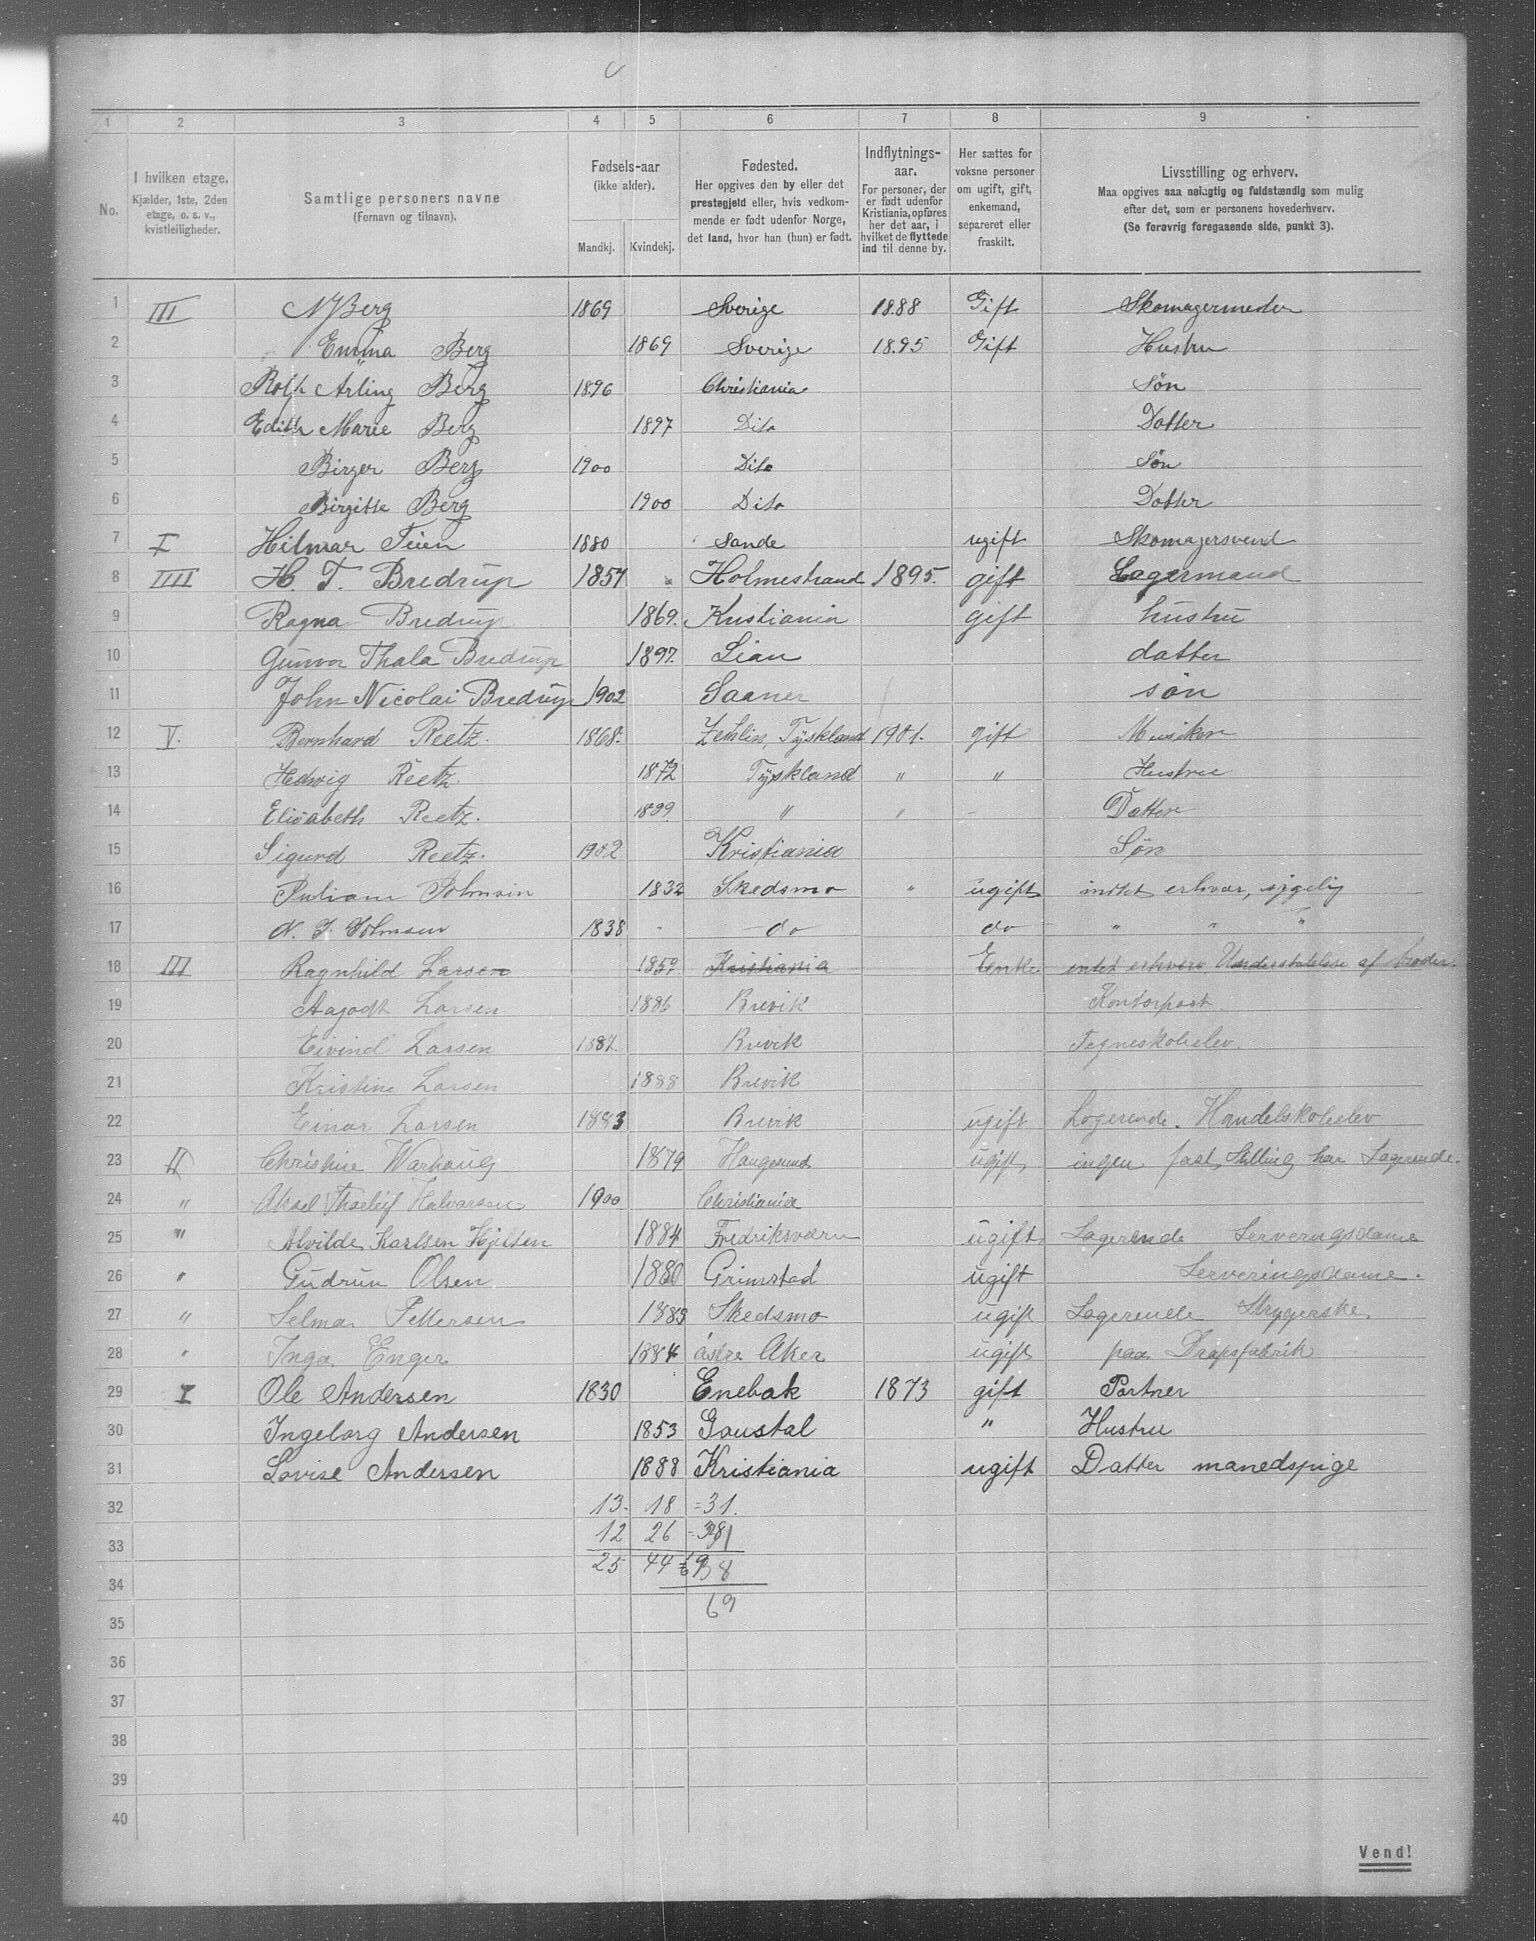 1 2 3 4 5 6 7 8 9
No.
I hvilken etage.
Kjælder, 1ste, 2den
etage, o. s. v.,
kvistleiligheder.
Samtlige personers navne
(Fornavn og tilnavn).
Fødsels-aar
(ikke alder).
Mandkj. Kvindekj.
Fødested.
Her opgives den by eller det
prestegjeld eller, hvis vedkom-
mende er født udenfor Norge,
det land, hvor han (hun) er født.
Indflytnings-
aar.
For personer, der
er født udenfor
Kristiania, opføres
her det aar, i
hvilket de flyttede
ind til denne by.
Her sættes for
voksne personer
om ugift, gift,
enkemand,
separeret eller
fraskilt.
Livsstilling og erhverv.
Maa opgives saa nøiagtig og fuldstændig som mulig
efter det, som er personens hovederhverv.
(Se forøvrig foregaaende side, punkt 3).
1 III Berg 1869 Sverige 1888 Gift Skomagermester
2 Emma Berg 1869 Sverige 1895 Gift Hustru
3 Rolf Arling Berg 1896 Christiania Søn
4 Edith Marie Berg 1897 Dito Datter
5 Birger Berg 1900 Dito Søn
6 Birgitte Berg 1900 Dito Datter
7 I Hilmar Teien 1880 Sande ugift Skomagersvend
8 IIII H. T. Bredrup 1857 Holmestrand 1895. gift Lagermand
9 Ragna Bredrup 1869. Kristiania gift hustru
10 Gunvor Thala Bredrup 1897. Lian datter
11 John Nicolai Bredrup 1902 Saaner søn
12 V. Bernhard Reetz. 1868. Tyskland 1901. gift Musiker
13 Hedwig Reetz. 1872 Tyskland " " Hustru
14 Elisabeth Reetz. 1899 " " Datter
15 Sigurd Reetz. 1902 Kristiania Søn
16 1832 Skedsmo " ugift intet erhver, sygelig
17 N. J. 1838 do do " " "
18 III Ragnhild Larsen 1859 Kristiania Enke intet erhverv Understøttelse af
19 Aagodt Larsen 1886 Brevik Kontorpost
20 Eivind Larsen 1887. Brevik Tegneskolelev.
21 Kristine Larsen 1888 Brevik
22 Einar Larsen 1883 Brevik ugift Logerende. Handelskolelev
23 II Christine Warhaug 1879 Haugesund ugift ingen fast Stilling har Logerende.
24 " Aksel Thorleif Halvorsen 1900 Christiania
25 " Alvilde Karlsen 1884 Fredriksværn ugift Logerende Serveringsdame
26 " Gudrun Olsen 1880 Grimstad ugift Serveringsdame.
27 " Selma Pettersen 1885 Skedsmo ugift Logerende Strygerske.
28 " Inga Enger 1884 østre Aker ugift paa Dropsfabrik
29 I Ole Andersen 1830 Enebak 1873 gift Portner
30 Ingeborg Andersen 1853 Goustal " Hustru
31 Lovise Andersen 1888 Kristiania ugift Datter manedspige
32 13. 18 = 31.
33 12 26
34 25 44 69 38
35 69
36
37
38
39
40
Vend!